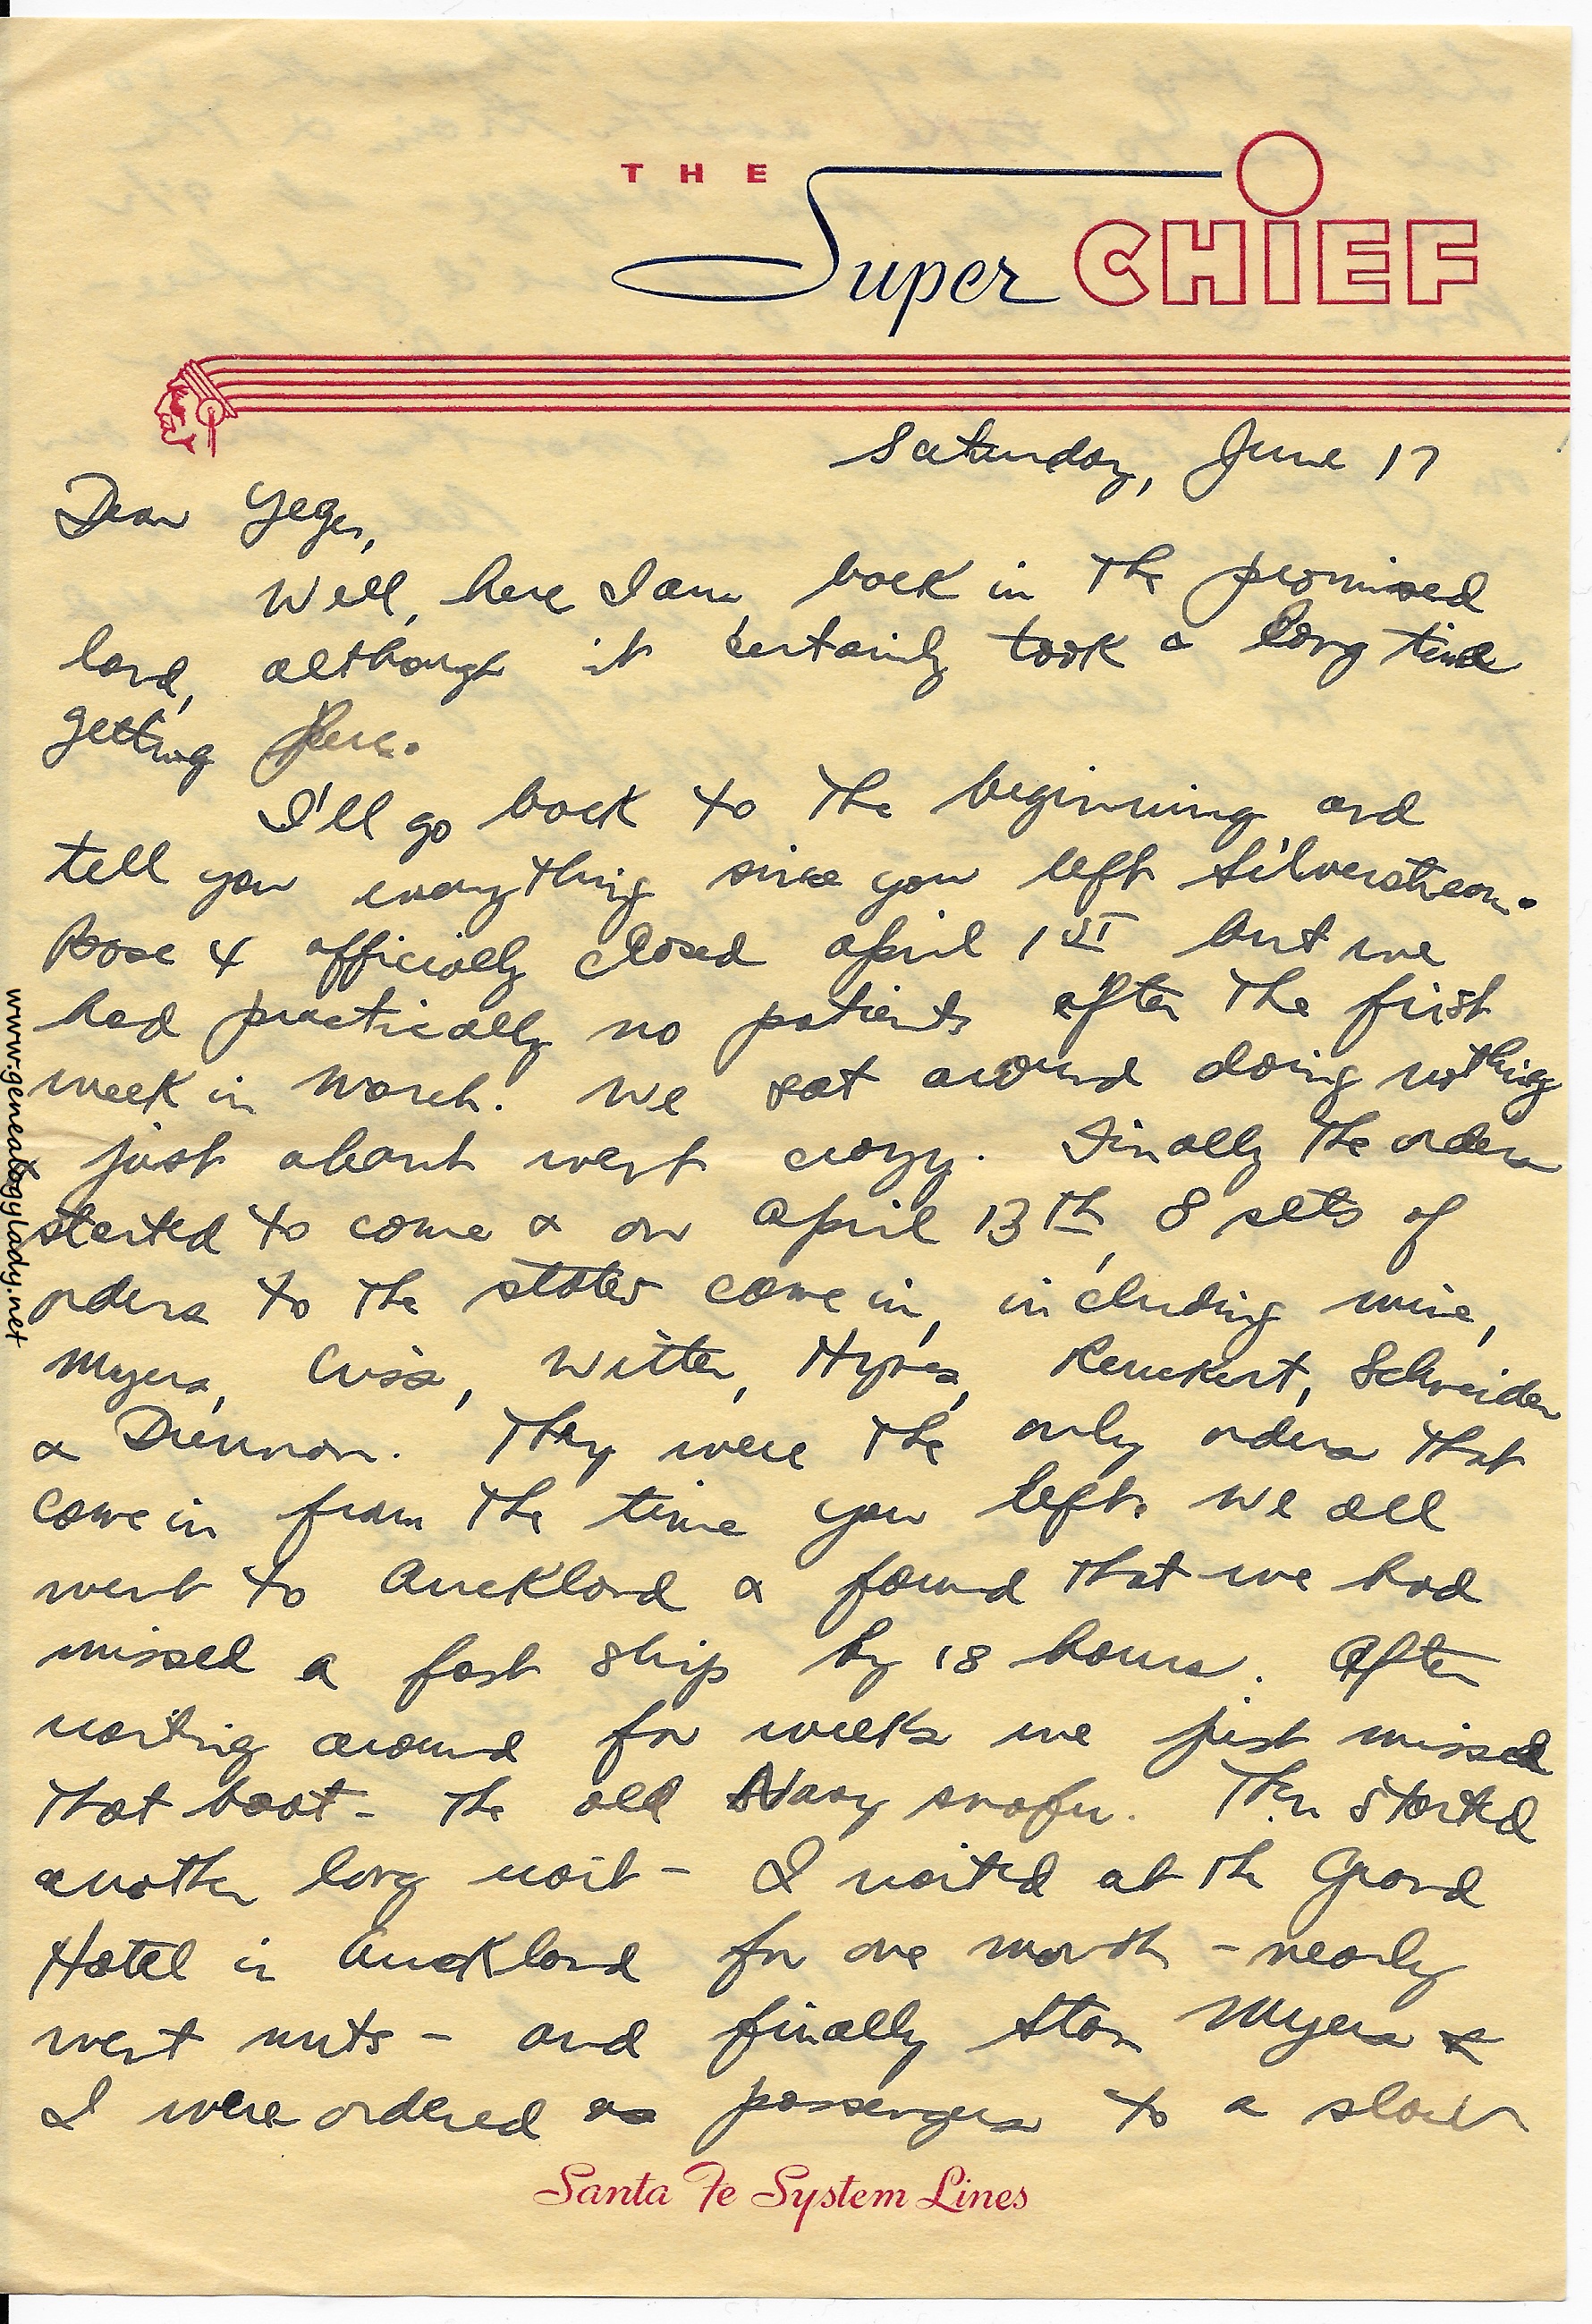 THE Super CHIEF
Saturday, June 17
Dear Yeger,
Well, here I am back in the promised
land, although it certainly took a long time
getting here.
I'll go back to the beginning and
tell you everything since you left Silverstream.
Base 4 officially closed April 1ST but we
had practically no patients after the first
week in March. We sat around doing nothing
just about went crazy. Finally the orders
started to come & on April 13th, 8 sets of
orders to the states came in, including mine,
Myers, Witter, Hynes, Schneider
& They were the only orders that
came in from the time you left. We all
went to Auckland & found that we had
missed a fast ship by 18 hours. After
waiting around for weeks we just missed
that boat - the old Navy snafu. Then started
another long wait - I waited at the Grand
Hotel in Auckland for one month - nearly
went nuts - and finally Stan Myers &
I were ordered as passengers to a slow
Santa Fe System Lines
www.genealogylady.net